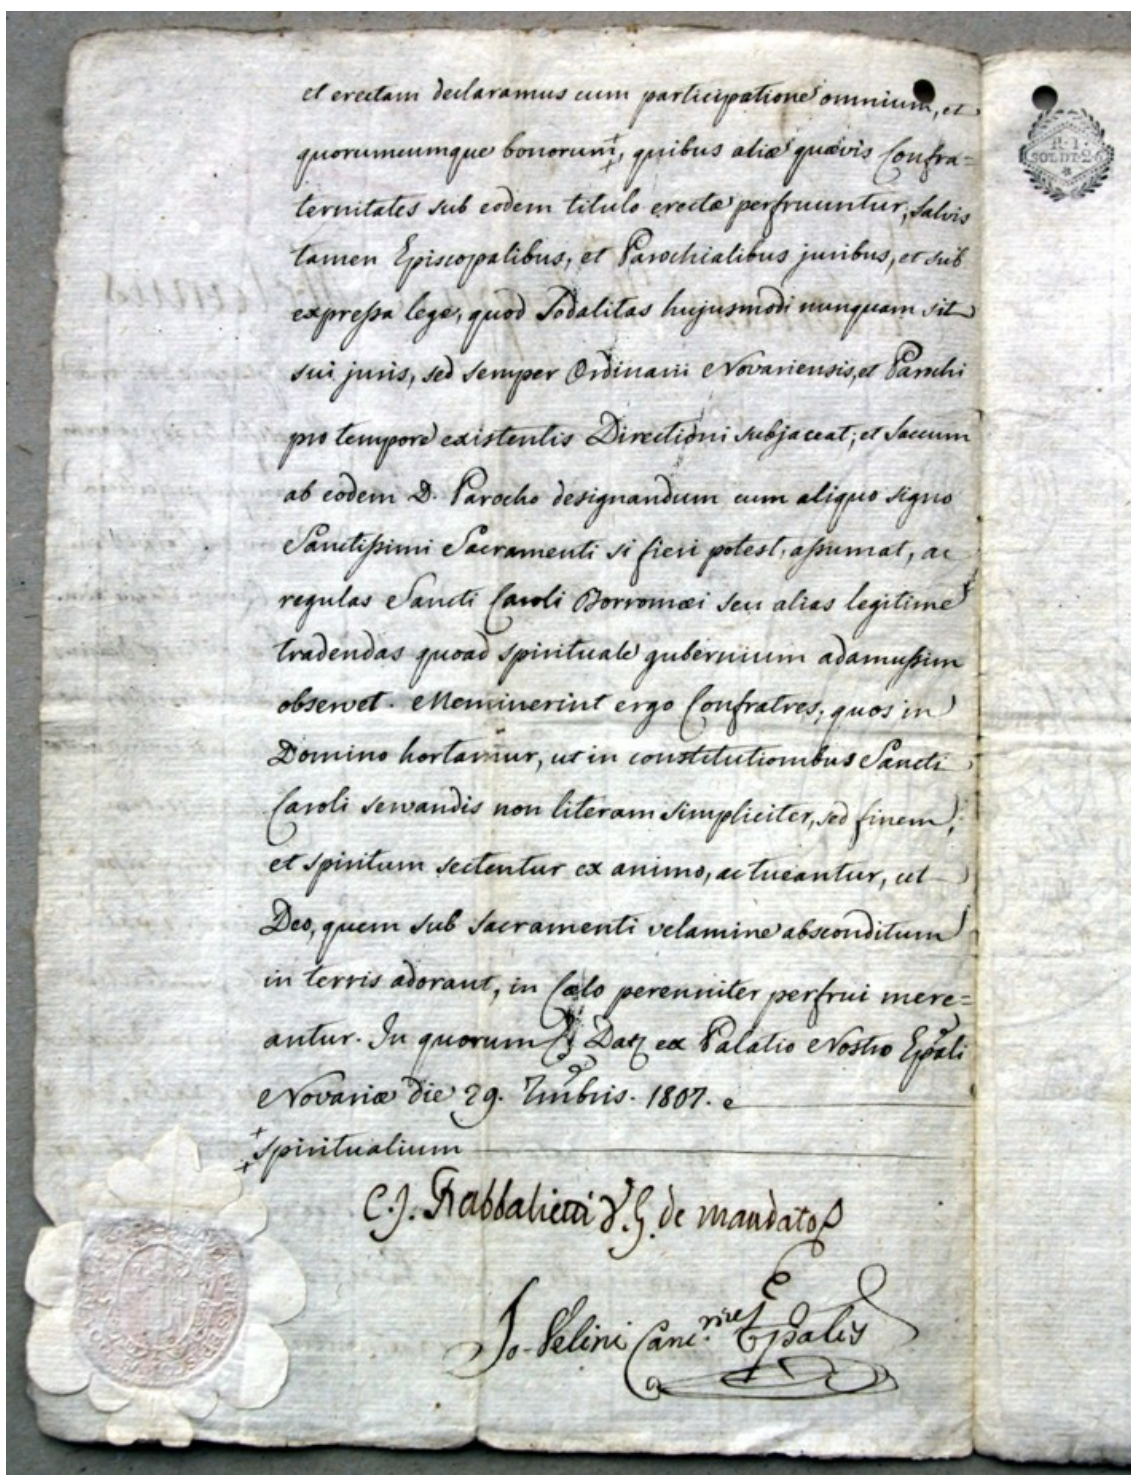 et erectam declaramus cum participatione omnium, et
quorumcumque bonorum ‡, quibus aliæ quævis Confra=
ternitates sub eodem titulo erectæ perfruuntur, salvis
tamen Episcopalibus, et Parochialibus juribus, et sub
expressa lege, quod Sodalitas hujusmodi nunquam sit
sui juris, sed semper Ordinarii Novariensis, et Parochi
pro tempore existentis Directioni subjaceat; et Saccum
ab eodem D. Parocho designandum cum aliquo signo
Sanctissimi Sacramenti si fieri potest, assumat, ac
regulas Sancti Caroli Borromæi seu alias legitime
tradendas quoad spirituale gubernium adamussim
observet. Meminerint ergo Confratres, quos in
Domino hortamur, ut in constitutionibus Sancti
Caroli servandis non literam simpliciter, sed finem,
et spiritum sectentur ex animo, ac tueantur, ut
Deo, quem sub Sacramenti velamine absconditum
in terris adorant, in Cælo perenniter perfrui mere=
antur. In quorum Dat ex Palatio Nostro Epali
Novariæ die 29. 7mbris. 1807.
‡ spiritualium
C. J. V. G. de mandato
Jo. Velini Canc. Epalis
R. I.
SOLDI. 2. 6